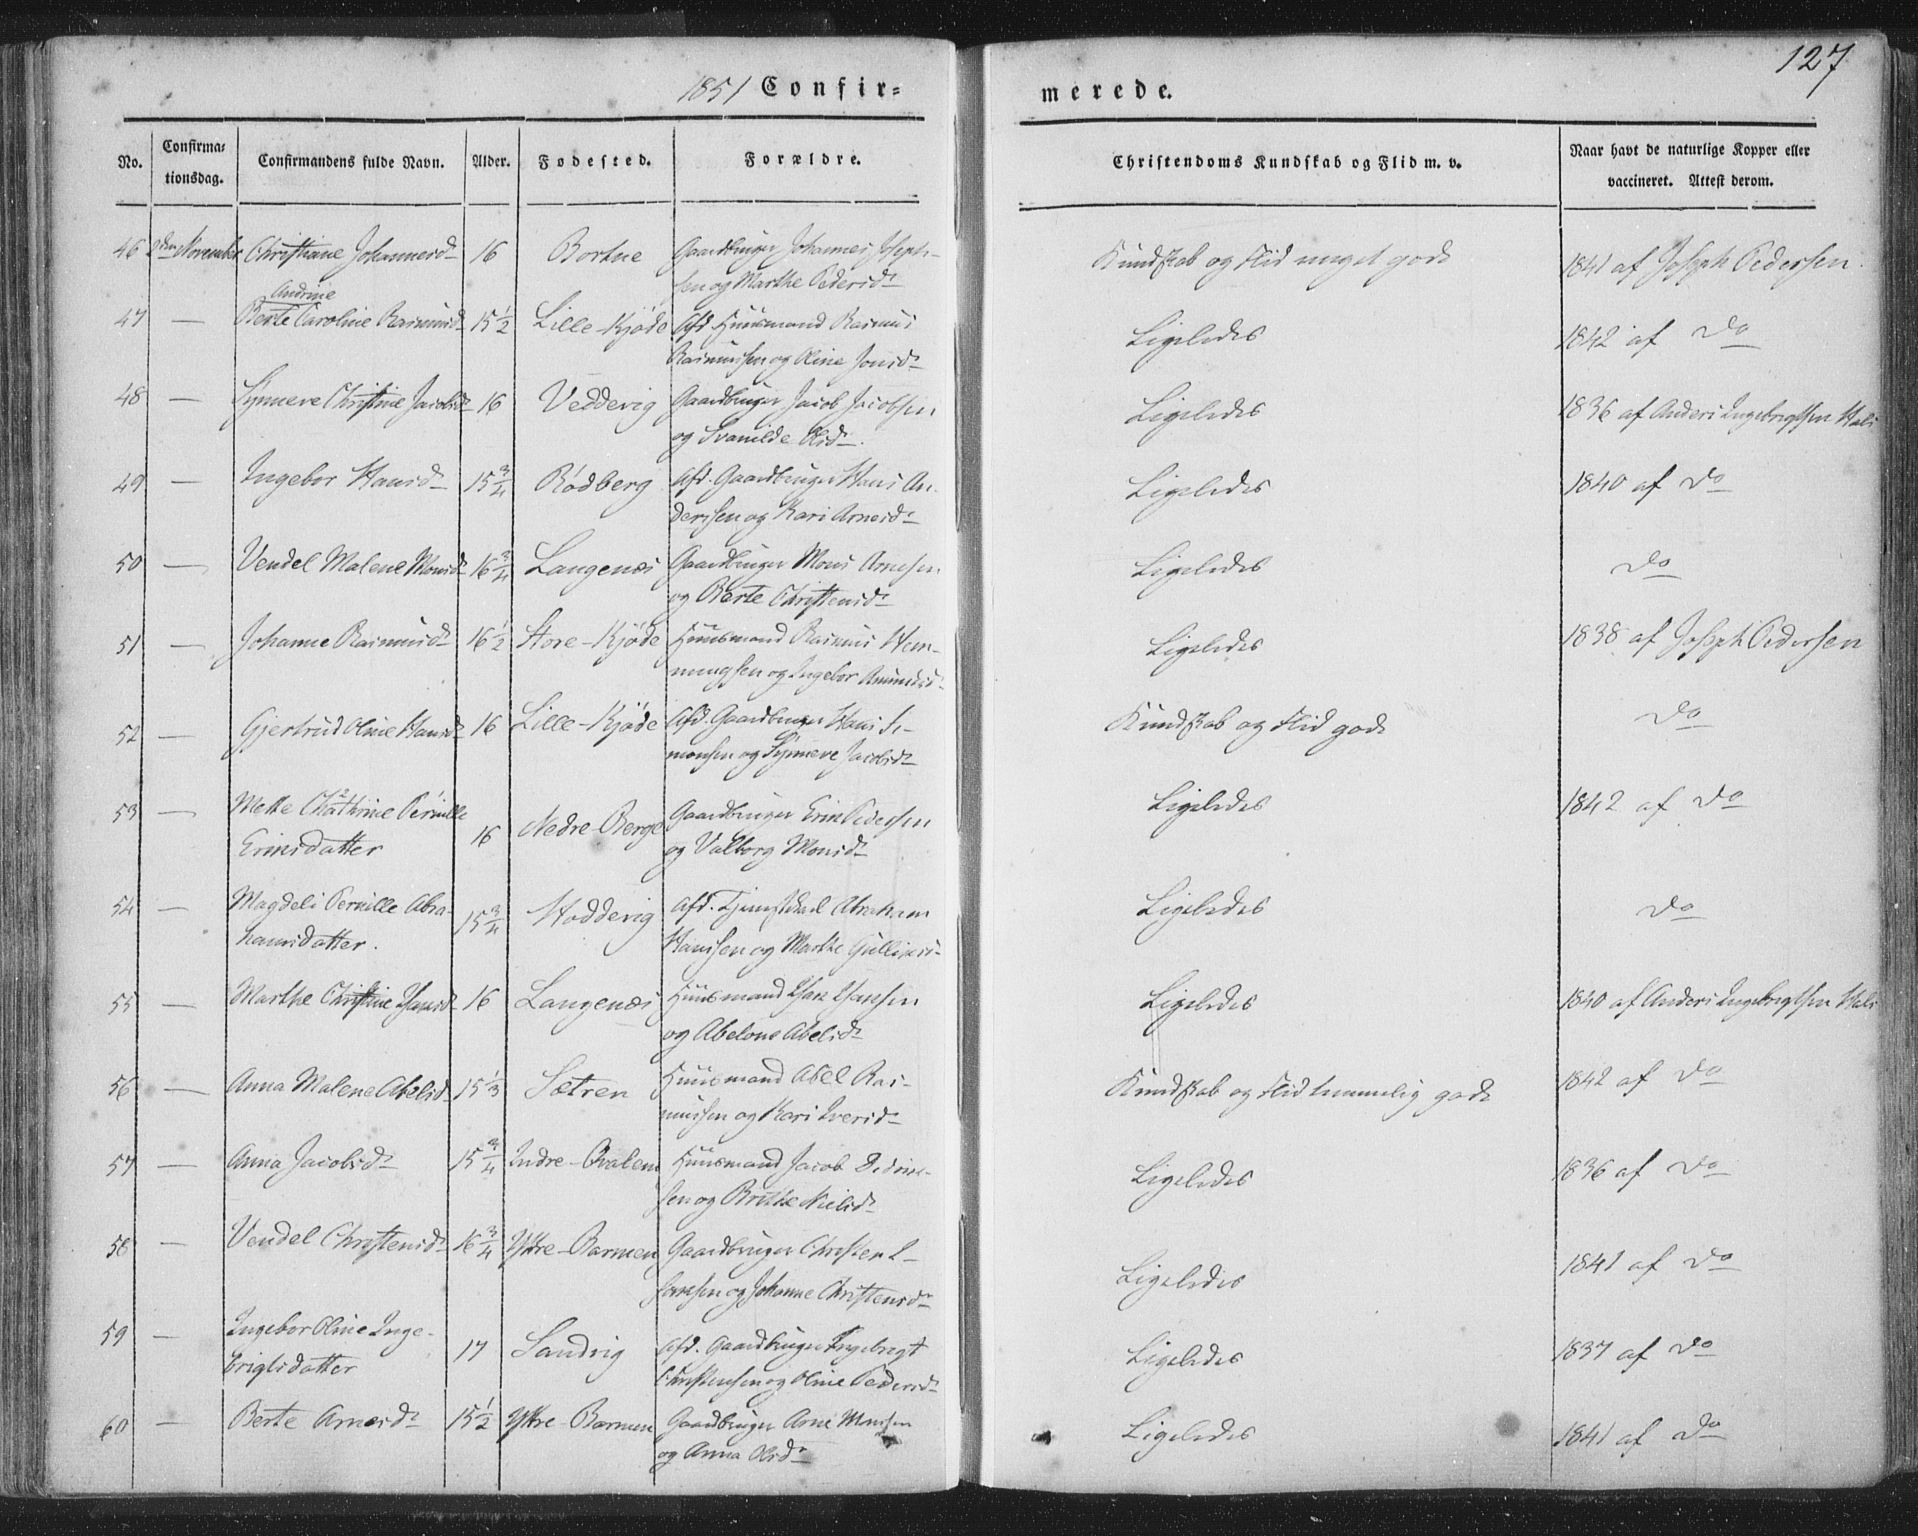 127
1851 Confir=
merede.
No.
Confirma=
tionsdag.
Confirmandens fulde Navn.
Alder.
Fødested.
Forældre.
Christendoms Kundskab og Flid m. v.
Naar havt de naturlige Kopper eller
vaccineret. Attest derom.
46 2den November Christiane Johannesd. 16 Bortne Gaardbruger Johannes Joseph-
sen og Marthe Pedersd. Kundskab og Flid meget gode 1841 af Joseph Pedersen.
Andrine
47 — Berte Caroline Rasmusd. 15½ Lille-Kjøde Afd. Huusmand Rasmus
Rasmussen og Oline Jonsd. Ligeledes 1842 af Do
48 — Synneve Christine Jacobsd. 16 Veddevig Gaardbruger Jacob Jacobsen
og Svanilde Olsd. Ligeledes 1836 af Anders Ingebrigtsen Hals
49 — Ingebor Hansd. 15¾ Rødberg Afd. Gaardbruger Hans An-
dersen og Kari Arnesd. Ligeledes 1840 af Do
50 — Vendel Malene Monsd. 16¾ Langenæs Gaardbruger Mons Arnesen
og Berte Christensd. Ligeledes Do
51 — Johanne Rasmusd. 16½ Store-Kjøde Huusmand Rasmus Hen-
ningsen og Ingebor Amundsd. Ligeledes 1838 af Joseph Pedersen
52 — Gjertrud Oline Hansd. 16 Lille-Kjøde Afd. Gaardbruger Hans Si-
monsen og Synneve Jacobsd. Kundskab og Flid gode Do
53 — Mette Chathrine Pernille
Erinsdatter 16 Nedre-Berge Gaardbruger Erin Pedersen
og Valborg Monsd. Ligeledes 1842 af Do
54 — Magdeli Pernille Abra-
hamsdatter. 15¾ Hoddevig Afd. Tjenstekarl Abraham
Hanssen og Marthe Gullikss- Ligeledes Do
55 — Marthe Christine Isaksd. 16 Langenæs Huusmand Isak Isaksen
og Abelone Abelsd. Ligeledes 1840 af Anders Ingebrigtsen Hals
56 — Anna Malene Abelsd. 15⅓ Sætren Huusmand Abel Ras-
mussen og Kari Iversd. Kundskab og Flid temmelig gode 1842 af Do
57 — Anna Jacobsd. 15¾ Indre-Qvalem Huusmand Jacob Didrik-
sen og Brithe Nielsd. Ligeledes 1836 af Do
58 — Vendel Christensd. 16¾ Yttre-Barmen Gaardbruger Christen I-
saksen og Johanne Christensd. Ligeledes 1841 af Do
59 — Ingebor Oline Inge-
brigtsdatter 17 Sandvig Afd. Gaardbruger Ingebrigt
Christensen og Oline Pedersd. Ligeledes 1837 af Do
60 — Berte Arnesd. 15½ Yttre-Barmen Gaardbruger Arne Monsen
og Anna Olsd. Ligeledes 1841 af Do